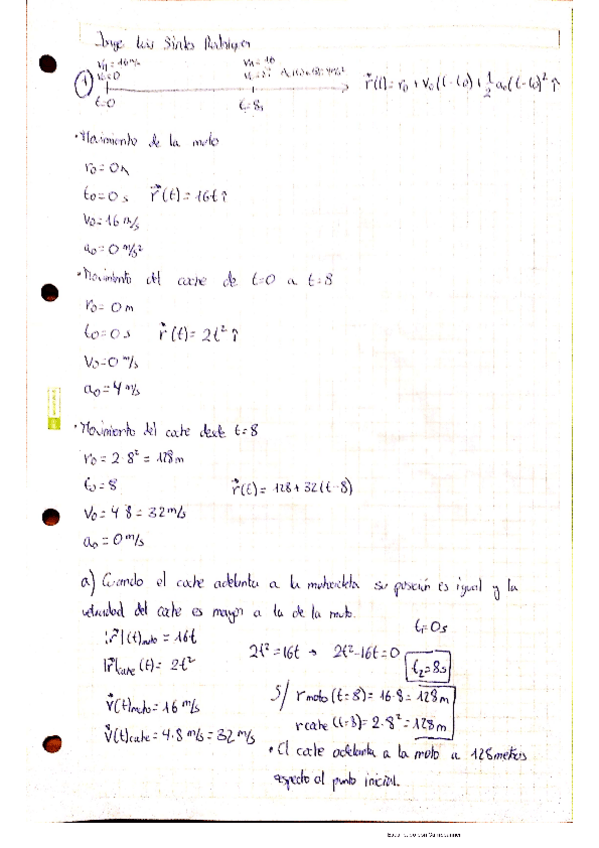 Jorge Luis
V_M = 16 m/s
V_M = 16
V_0 = 0
t=0
t=8s
①
r⃗(t) = r₀ + v₀(t-t₀) + 1/2 a₀(t-t₀)² î
• Movimiento de la moto
r₀ = 0 m
t₀ = 0 s    r⃗(t) = 16t î
V₀ = 16 m/s
a₀ = 0 m/s²
• Movimiento del coche de t=0 a t=8
r₀ = 0 m
t₀ = 0 s    r⃗(t) = 2t² î
V₀ = 0 m/s
a₀ = 4 m/s
• Movimiento del coche desde t=8
r₀ = 2·8² = 128m
t₀ = 8    r⃗(t) = 128 + 32(t-8)
V₀ = 4·8 = 32 m/s
a₀ = 0 m/s
a) Cuando el coche adelanta a la motocicleta su posición es igual y la
velocidad del coche es mayor a la de la moto.
|r⃗|(t)moto = 16t
|r⃗|coche (t) = 2t²
2t² = 16t → 2t² - 16t = 0
t₁ = 0s
t₂ = 8s
v⃗(t)moto = 16 m/s
v⃗(t)coche = 4·8 m/s = 32 m/s
S/ r moto (t=8) = 16·8 = 128m
r coche (t=8) = 2·8² = 128m
• El coche adelanta a la moto a 128 metros
respecto al punto inicial.